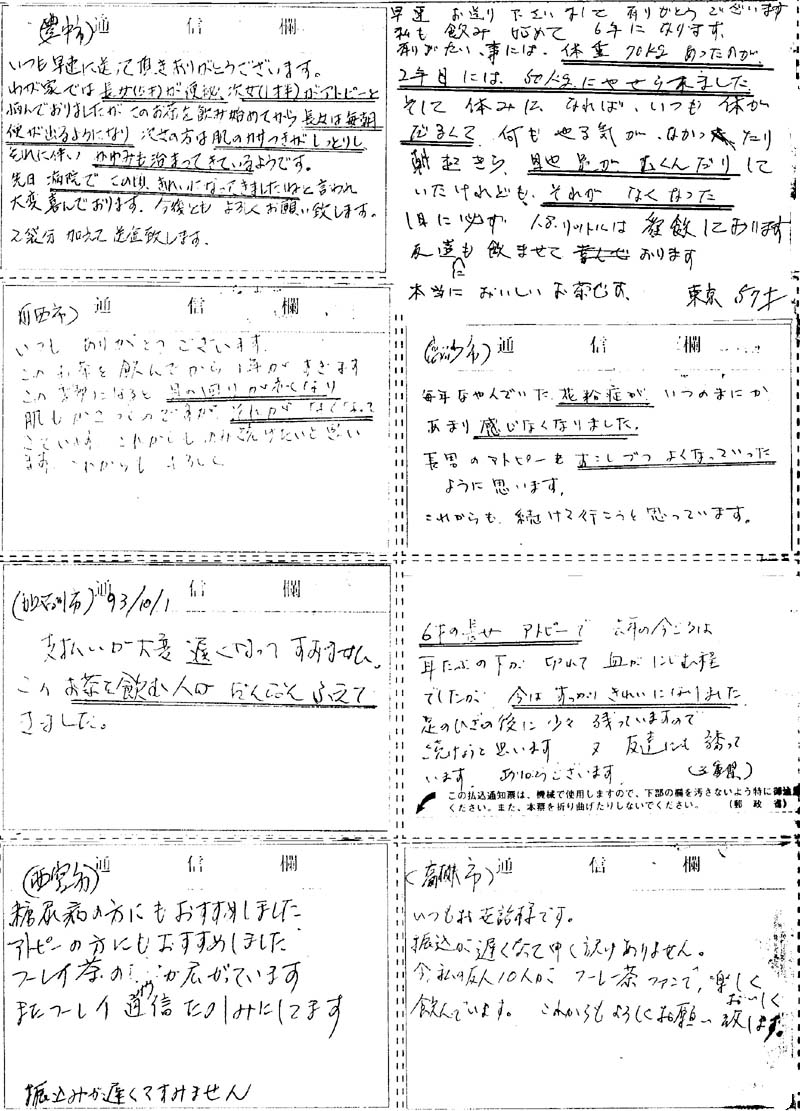 (豊中市) 通 信 欄
いつも早速に送って頂きありがとうございます。
わが家では長女(5才)が便秘、次女(1才半)がアトピーと
悩んでおりましたが このお茶を飲み始めてから 長女は毎朝
便が出るようになり 次女の方は肌のカサつきがしっとりし
それに伴い かゆみも治まってきているようです。
先日 病院で この頃、きれいになってきましたねと言われ
大変喜んでおります。今後とも よろしくお願い致します。
2袋分 加えて 送金致します。
早速 お送り下さいまして ありがとうございます
私も 飲み 始めて 6年になります。
ありがたい事には、体重 70kg あったのが、
2年目には、50kgにやせられました
そして 休みになれば、いつも 体が
だるくて 何も やる気が なかったり
朝起きたら 足が むくんだりして
いたけれども、それが なくなった
1日に必ず 1.8リットルは 飲んでおります
友達にも 飲ませて おります
本当に おいしい お茶です。 東京 57才
(川西市) 通 信 欄
いつも ありがとうございます。
このお茶を飲んでから 1年がすぎます
この季節になると 目の回りが赤くなり
肌もかさつくのですが それがなくなって
きています。これからも 続けたいと思い
ます。これからも よろしく
通 信 欄
毎年なやんでいた 花粉症が いつのまにか
あまり 感じなくなりました。
長男のアトピーも すこしづつ よくなっていった
ように思います。
これからも、続けて行こうと思っています。
(加古川市) 通 信 欄
93/10/1
支払いが大変 遅くなって すみません。
この お茶を飲む人が だんだん ふえて
きました。
6才の長女 アトピーで 去年の今ごろは
耳たぶの下が 切れて 血がにじむ程
でしたが 今は すっかり きれいになりました
足のひざの後に少々 残っていますので
続けようと思います 又 友達にも 誘って
います ありがとうございます
この払込通知票は、機械で使用しますので、下部の欄を汚さないよう特に御注意
ください。また、本票を折り曲げたりしないでください。 (郵 政 省)
(西宮市) 通 信 欄
糖尿病の方にもおすすめしました
アトピーの方にもおすすめしました
フーレイ茶の が広がっています
またフーレイ通信 たのしみにしてます
振込みが遅くてすみません
(高槻市) 通 信 欄
いつもお世話様です。
振込が遅くなって申し訳ありません。
今、私の友人10人が、フーレー茶 ファンで、楽しく
おいしく
飲んでいます。これからもよろしくお願い致します。